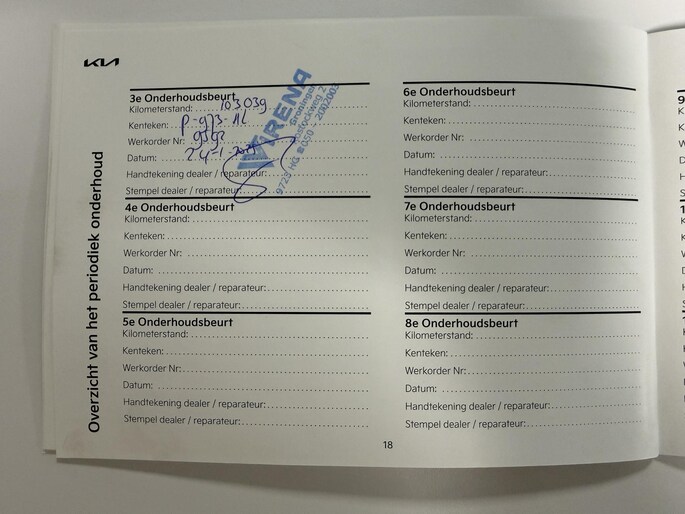 KIA
Overzicht van het periodiek onderhoud
3e Onderhoudsbeurt
Kilometerstand: 103039
Kenteken: P-973-HL
Werkorder Nr:
Datum: 24-1-2025
Handtekening dealer / reparateur:
Stempel dealer / reparateur:
ARENA
Groningen
2
9723 HG ☎ 050 - 2002003
4e Onderhoudsbeurt
Kilometerstand:
Kenteken:
Werkorder Nr:
Datum:
Handtekening dealer / reparateur:
Stempel dealer / reparateur:
5e Onderhoudsbeurt
Kilometerstand:
Kenteken:
Werkorder Nr:
Datum:
Handtekening dealer / reparateur:
Stempel dealer / reparateur:
6e Onderhoudsbeurt
Kilometerstand:
Kenteken:
Werkorder Nr:
Datum:
Handtekening dealer / reparateur:
Stempel dealer / reparateur:
7e Onderhoudsbeurt
Kilometerstand:
Kenteken:
Werkorder Nr:
Datum:
Handtekening dealer / reparateur:
Stempel dealer / reparateur:
8e Onderhoudsbeurt
Kilometerstand:
Kenteken:
Werkorder Nr:
Datum:
Handtekening dealer / reparateur:
Stempel dealer / reparateur:
18